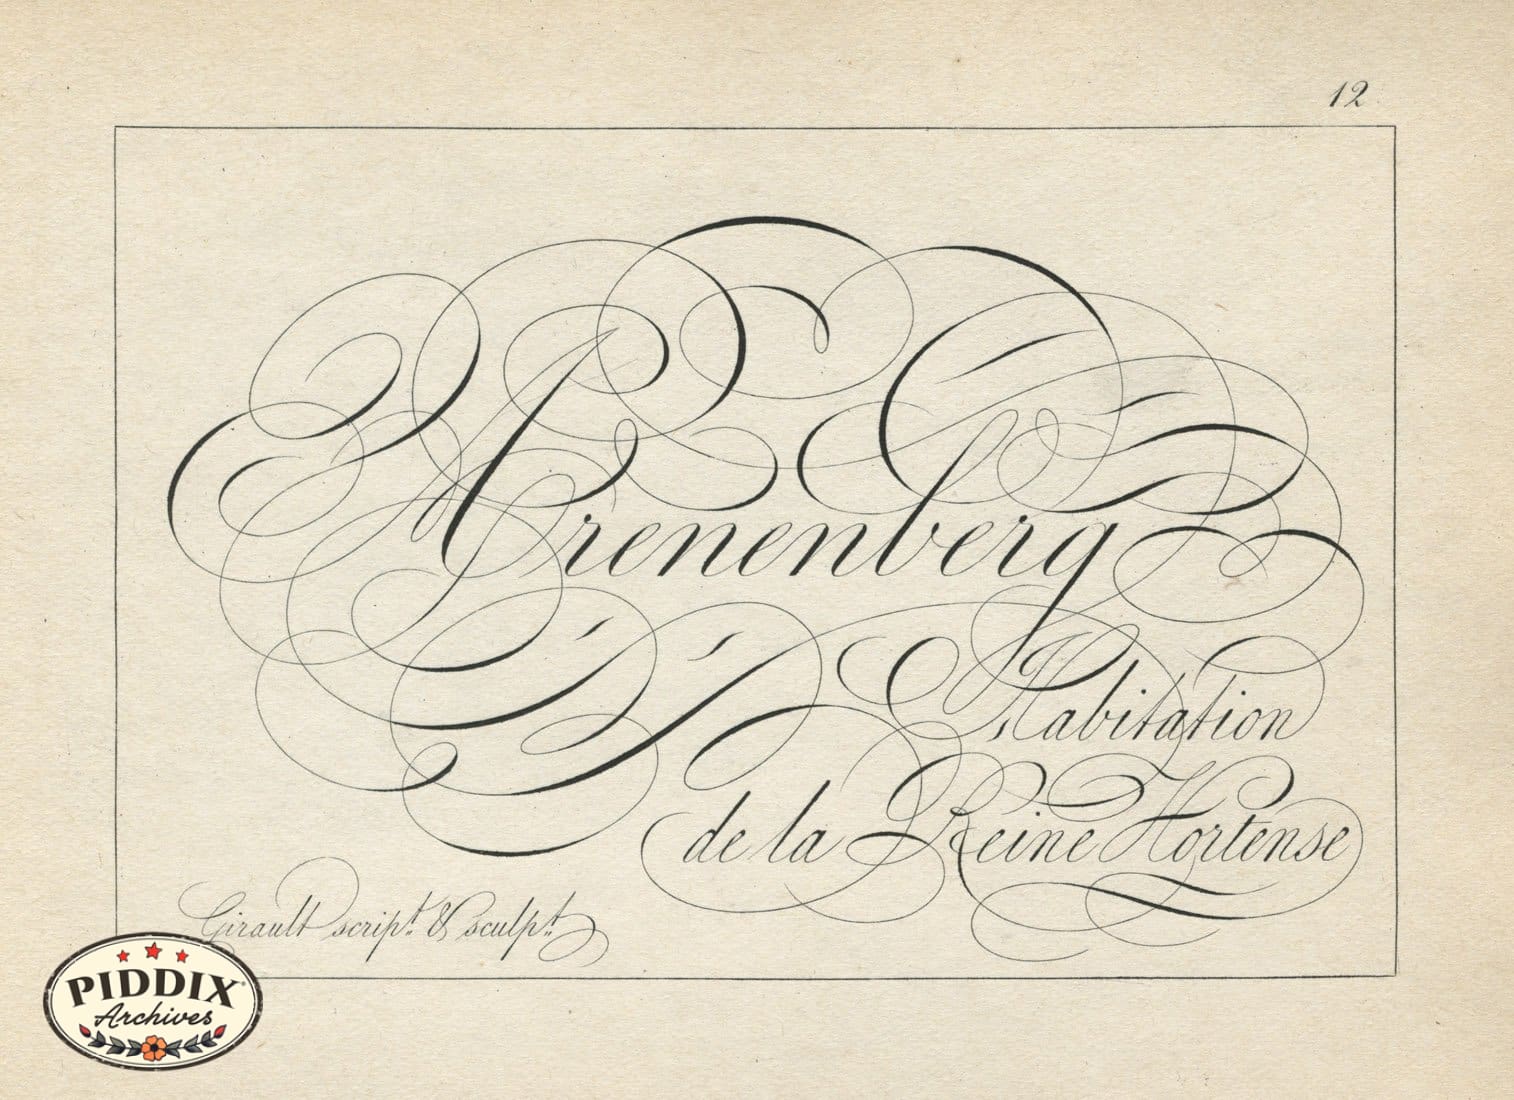 12
Arenenberg
Habitation
de la Reine Hortense
Girault scrip.t & sculp.t
PIDDIX
Archives